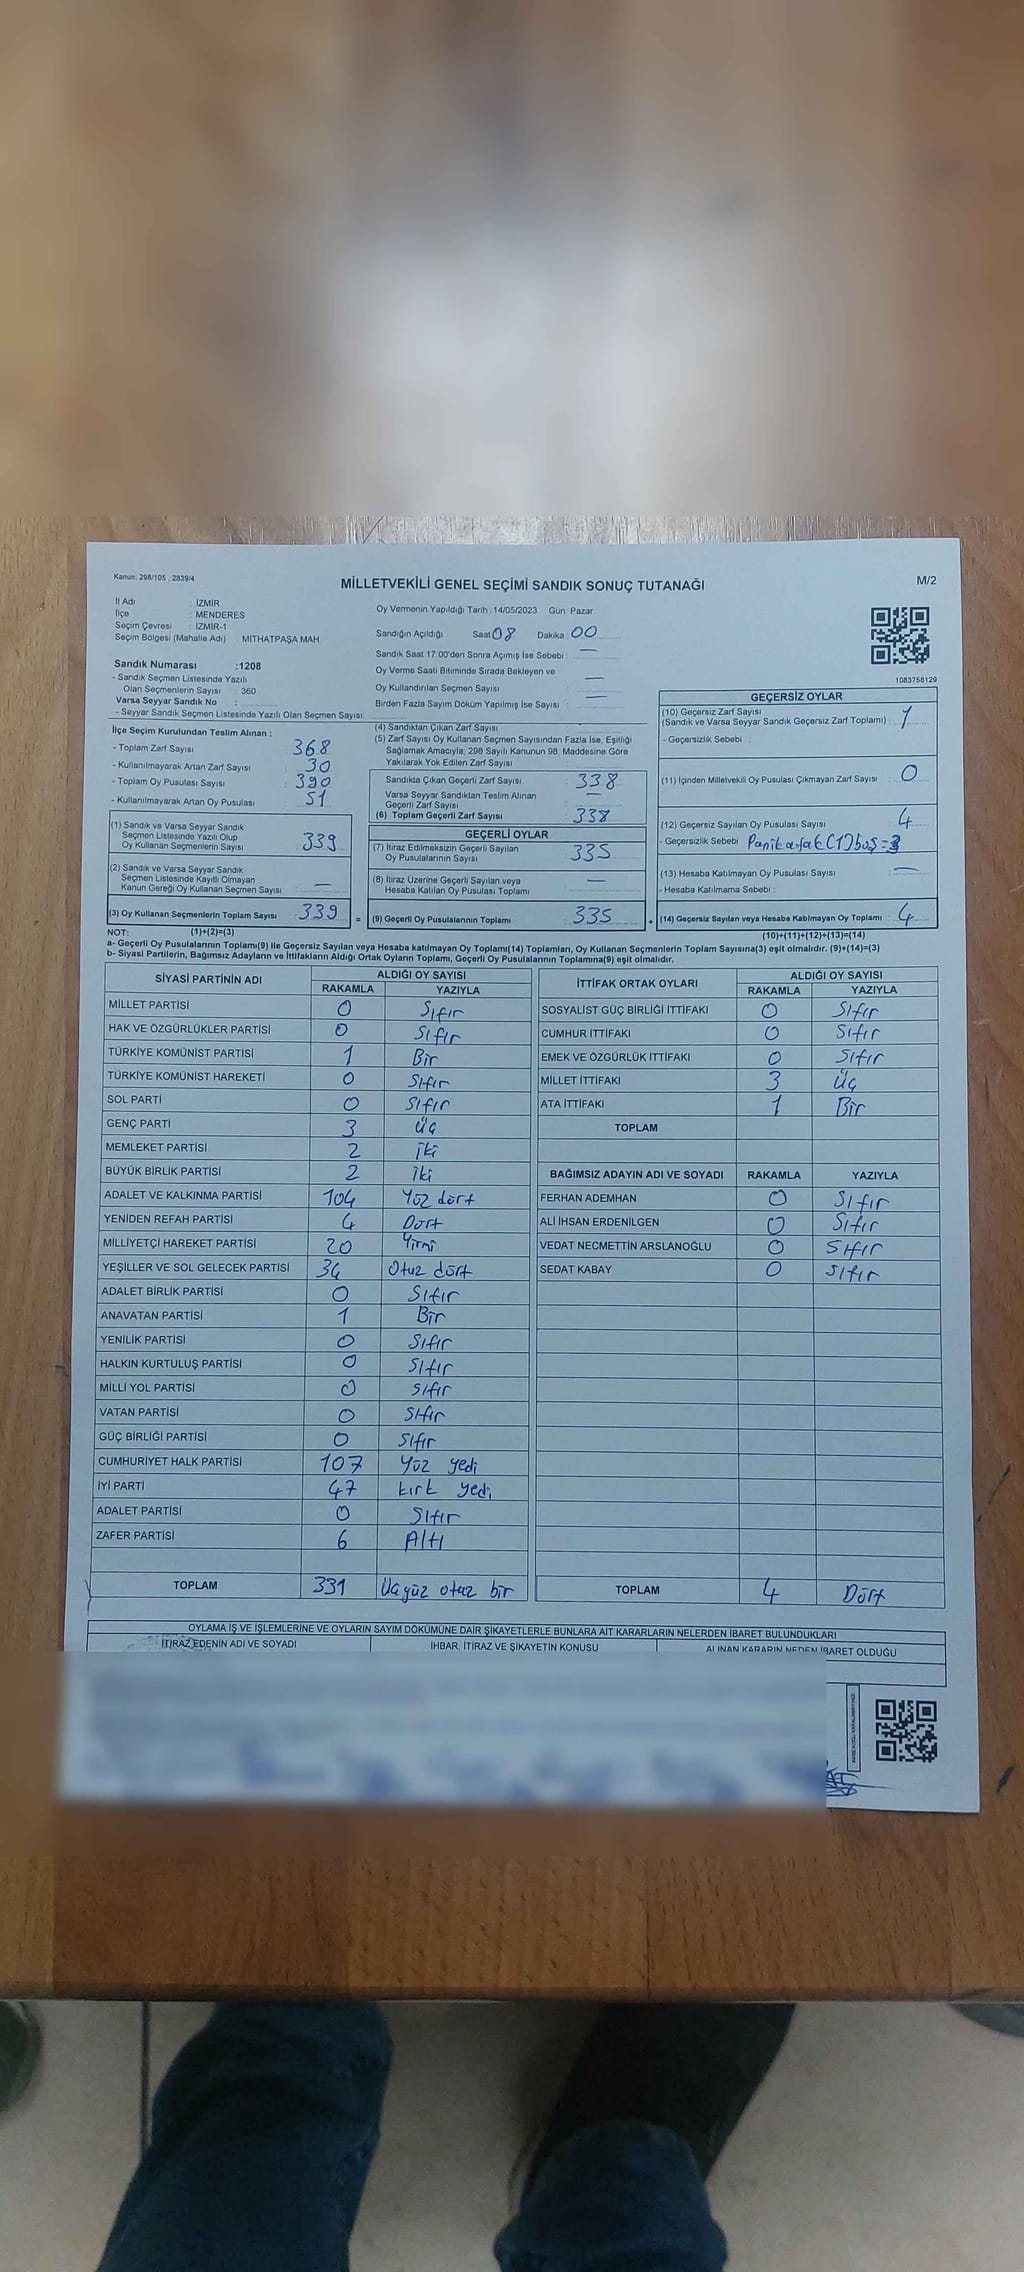 Kanun: 298/105 , 2839/4
MİLLETVEKİLİ GENEL SEÇİMİ SANDIK SONUÇ TUTANAĞI
M/2
İl Adı : İZMİR
İlçe : MENDERES
Seçim Çevresi : İZMİR-1
Seçim Bölgesi (Mahalle Adı) MİTHATPAŞA MAH.
Oy Vermenin Yapıldığı Tarih :14/05/2023 Gün: Pazar
Sandığın Açıldığı Saat 08 Dakika: 00
Sandık Saat 17.00'den Sonra Açımış İse Sebebi : —
Oy Verme Saati Bitiminde Sırada Bekleyen ve
Oy Kullandırılan Seçmen Sayısı : —
Birden Fazla Sayım Döküm Yapılmış İse Sayısı : —
1083758129
Sandık Numarası :1208
- Sandık Seçmen Listesinde Yazılı
Olan Seçmenlerin Sayısı : 360
Varsa Seyyar Sandık No :
- Seyyar Sandık Seçmen Listesinde Yazılı Olan Seçmen Sayısı:
İlçe Seçim Kurulundan Teslim Alınan ;
- Toplam Zarf Sayısı : 368
- Kullanılmayarak Artan Zarf Sayısı : 30
- Toplam Oy Pusulası Sayısı : 390
- Kullanılmayarak Artan Oy Pusulası : 51
(1) Sandık ve Varsa Seyyar Sandık
Seçmen Listesinde Yazılı Olup
Oy Kullanan Seçmenlerin Sayısı : 339
(2) Sandık ve Varsa Seyyar Sandık
Seçmen Listesinde Kayıtlı Olmayan
Kanun Gereği Oy Kullanan Seçmen Sayısı : —
(3) Oy Kullanan Seçmenlerin Toplam Sayısı : 339
(4) Sandıktan Çıkan Zarf Sayısı :
(5) Zarf Sayısı Oy Kullanan Seçmen Sayısından Fazla İse, Eşitliği
Sağlamak Amacıyla, 298 Sayılı Kanunun 98. Maddesine Göre
Yakılarak Yok Edilen Zarf Sayısı :
Sandıkta Çıkan Geçerli Zarf Sayısı : 338
Varsa Seyyar Sandıktan Teslim Alınan
Geçerli Zarf Sayısı : —
(6) Toplam Geçerli Zarf Sayısı : 338
GEÇERLİ OYLAR
(7) İtiraz Edilmeksizin Geçerli Sayılan
Oy Pusulalarının Sayısı : 335
(8) İtiraz Üzerine Geçerli Sayılan veya
Hesaba Katılan Oy Pusulası Toplamı : —
= (9) Geçerli Oy Pusulalarının Toplamı : 335
GEÇERSİZ OYLAR
(10) Geçersiz Zarf Sayısı
(Sandık ve Varsa Seyyar Sandık Geçersiz Zarf Toplamı) : 1
- Geçersizlik Sebebi :
(11) İçinden Milletvekili Oy Pusulası Çıkmayan Zarf Sayısı : 0
(12) Geçersiz Sayılan Oy Pusulası Sayısı : 4
- Geçersizlik Sebebi
(13) Hesaba Katılmayan Oy Pusulası Sayısı : —
- Hesaba Katılmama Sebebi :
+ (14) Geçersiz Sayılan veya Hesaba Katılmayan Oy Toplamı : 4
NOT: (1)+(2)=(3)
(10)+(11)+(12)+(13)=(14)
a- Geçerli Oy Pusulalarının Toplamı(9) İle Geçersiz Sayılan veya Hesaba katılmayan Oy Toplamı(14) Toplamları, Oy Kullanan Seçmenlerin Toplam Sayısına(3) eşit olmalıdır. (9)+(14)=(3)
b- Siyasi Partilerin, Bağımsız Adayların ve İttifakların Aldığı Ortak Oyların Toplamı, Geçerli Oy Pusulalarının Toplamına(9) eşit olmalıdır.
SİYASİ PARTİNİN ADI ALDIĞI OY SAYISI
RAKAMLA YAZIYLA
MİLLET PARTİSİ 0 Sıfır
HAK VE ÖZGÜRLÜKLER PARTİSİ 0 Sıfır
TÜRKİYE KOMÜNİST PARTİSİ 1 Bir
TÜRKİYE KOMÜNİST HAREKETİ 0 Sıfır
SOL PARTİ 0 Sıfır
GENÇ PARTİ 3 Üç
MEMLEKET PARTİSİ 2 İki
BÜYÜK BİRLİK PARTİSİ 2 İki
ADALET VE KALKINMA PARTİSİ 104 Yüz dört
YENİDEN REFAH PARTİSİ 4 Dört
MİLLİYETÇİ HAREKET PARTİSİ 20 Yirmi
YEŞİLLER VE SOL GELECEK PARTİSİ 34 Otuz dört
ADALET BİRLİK PARTİSİ 0 Sıfır
ANAVATAN PARTİSİ 1 Bir
YENİLİK PARTİSİ 0 Sıfır
HALKIN KURTULUŞ PARTİSİ 0 Sıfır
MİLLİ YOL PARTİSİ 0 Sıfır
VATAN PARTİSİ 0 Sıfır
GÜÇ BİRLİĞİ PARTİSİ 0 Sıfır
CUMHURİYET HALK PARTİSİ 107 Yüz yedi
İYİ PARTİ 47 kırk yedi
ADALET PARTİSİ 0 Sıfır
ZAFER PARTİSİ 6 Altı
TOPLAM 331 Üçyüz otuz bir
İTTİFAK ORTAK OYLARI ALDIĞI OY SAYISI
RAKAMLA YAZIYLA
SOSYALİST GÜÇ BİRLİĞİ İTTİFAKI 0 Sıfır
CUMHUR İTTİFAKI 0 Sıfır
EMEK VE ÖZGÜRLÜK İTTİFAKI 0 Sıfır
MİLLET İTTİFAKI 3 Üç
ATA İTTİFAKI 1 Bir
TOPLAM
BAĞIMSIZ ADAYIN ADI VE SOYADI RAKAMLA YAZIYLA
FERHAN ADEMHAN 0 Sıfır
ALİ İHSAN ERDENİLGEN 0 Sıfır
VEDAT NECMETTİN ARSLANOĞLU 0 Sıfır
SEDAT KABAY 0 Sıfır
TOPLAM 4 Dört
OYLAMA İŞ VE İŞLEMLERİNE VE OYLARIN SAYIM DÖKÜMÜNE DAİR ŞİKAYETLERLE BUNLARA AİT KARARLARIN NELERDEN İBARET BULUNDUKLARI
İTİRAZ EDENİN ADI VE SOYADI İHBAR, İTİRAZ VE ŞİKAYETİN KONUSU ALINAN KARARIN NEDEN İBARET OLDUĞU